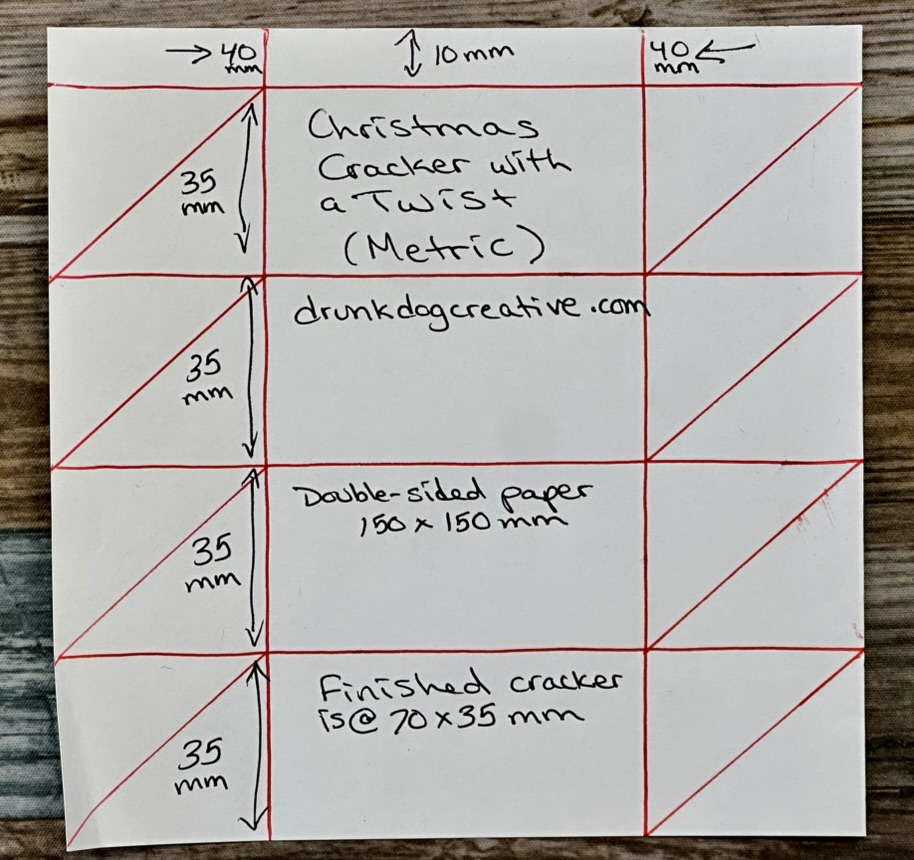 → 40 mm
10 mm
40 mm ←
Christmas
Cracker with
a Twist
(Metric)
35
mm
drunkdogcreative.com
35
mm
Double-sided paper
150 x 150 mm
35
mm
Finished cracker
is @ 70 x 35 mm
35
mm